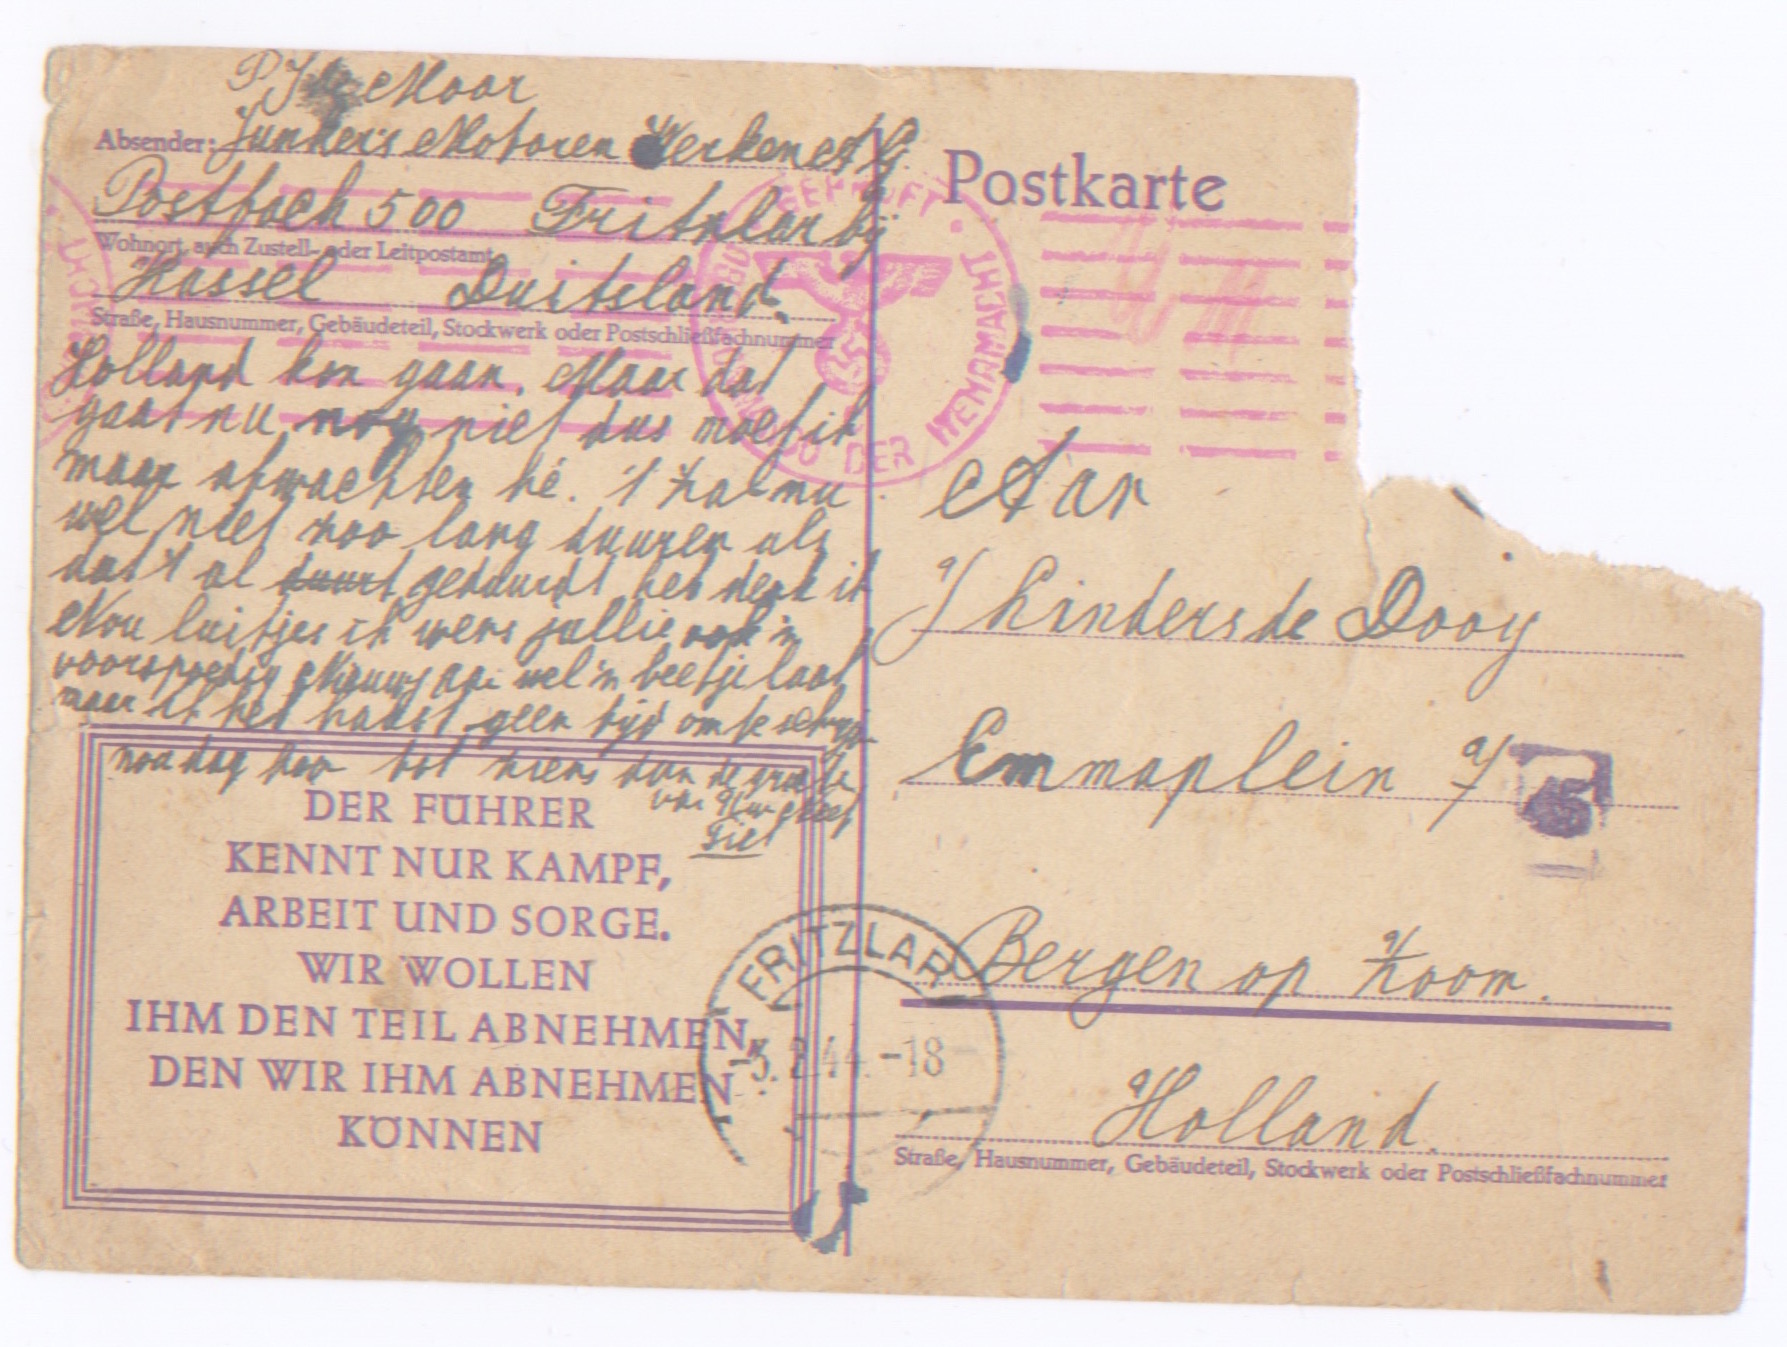 P J de Moor
Absender: Junkers Motoren Werken A G.
Postfach 500 Fritzlar bij
Wohnort, auch Zustell- oder Leitpostamt
Kassel Duitsland.
Straße, Hausnummer, Gebäudeteil, Stockwerk oder Postschließfachnummer
Holland kon gaan. Maar dat
gaat nu nog niet dus moet ik
maar afwachten hé. 't zal nu
wel niet zoo lang duuren als
dat 't al duurt geduurdt heb denk ik
Nou luitjes ik wens jullie ook 'n
voorspoedig Nieuwjaar wel 'n beetje laat
maar ik heb haast geen tijd om te schrijven
nou dag hoor tot ziens dan de groete
van
Piet
DER FÜHRER
KENNT NUR KAMPF,
ARBEIT UND SORGE.
WIR WOLLEN
IHM DEN TEIL ABNEHMEN,
DEN WIR IHM ABNEHMEN
KÖNNEN
GEPRÜFT
DER WEHRMACHT
Postkarte
Aan
Kinders de Dooy
Emmaplein 7
5
Bergen op Zoom.
Holland.
Straße, Hausnummer, Gebäudeteil, Stockwerk oder Postschließfachnummer
FRITZLAR
-3.2.44.-18